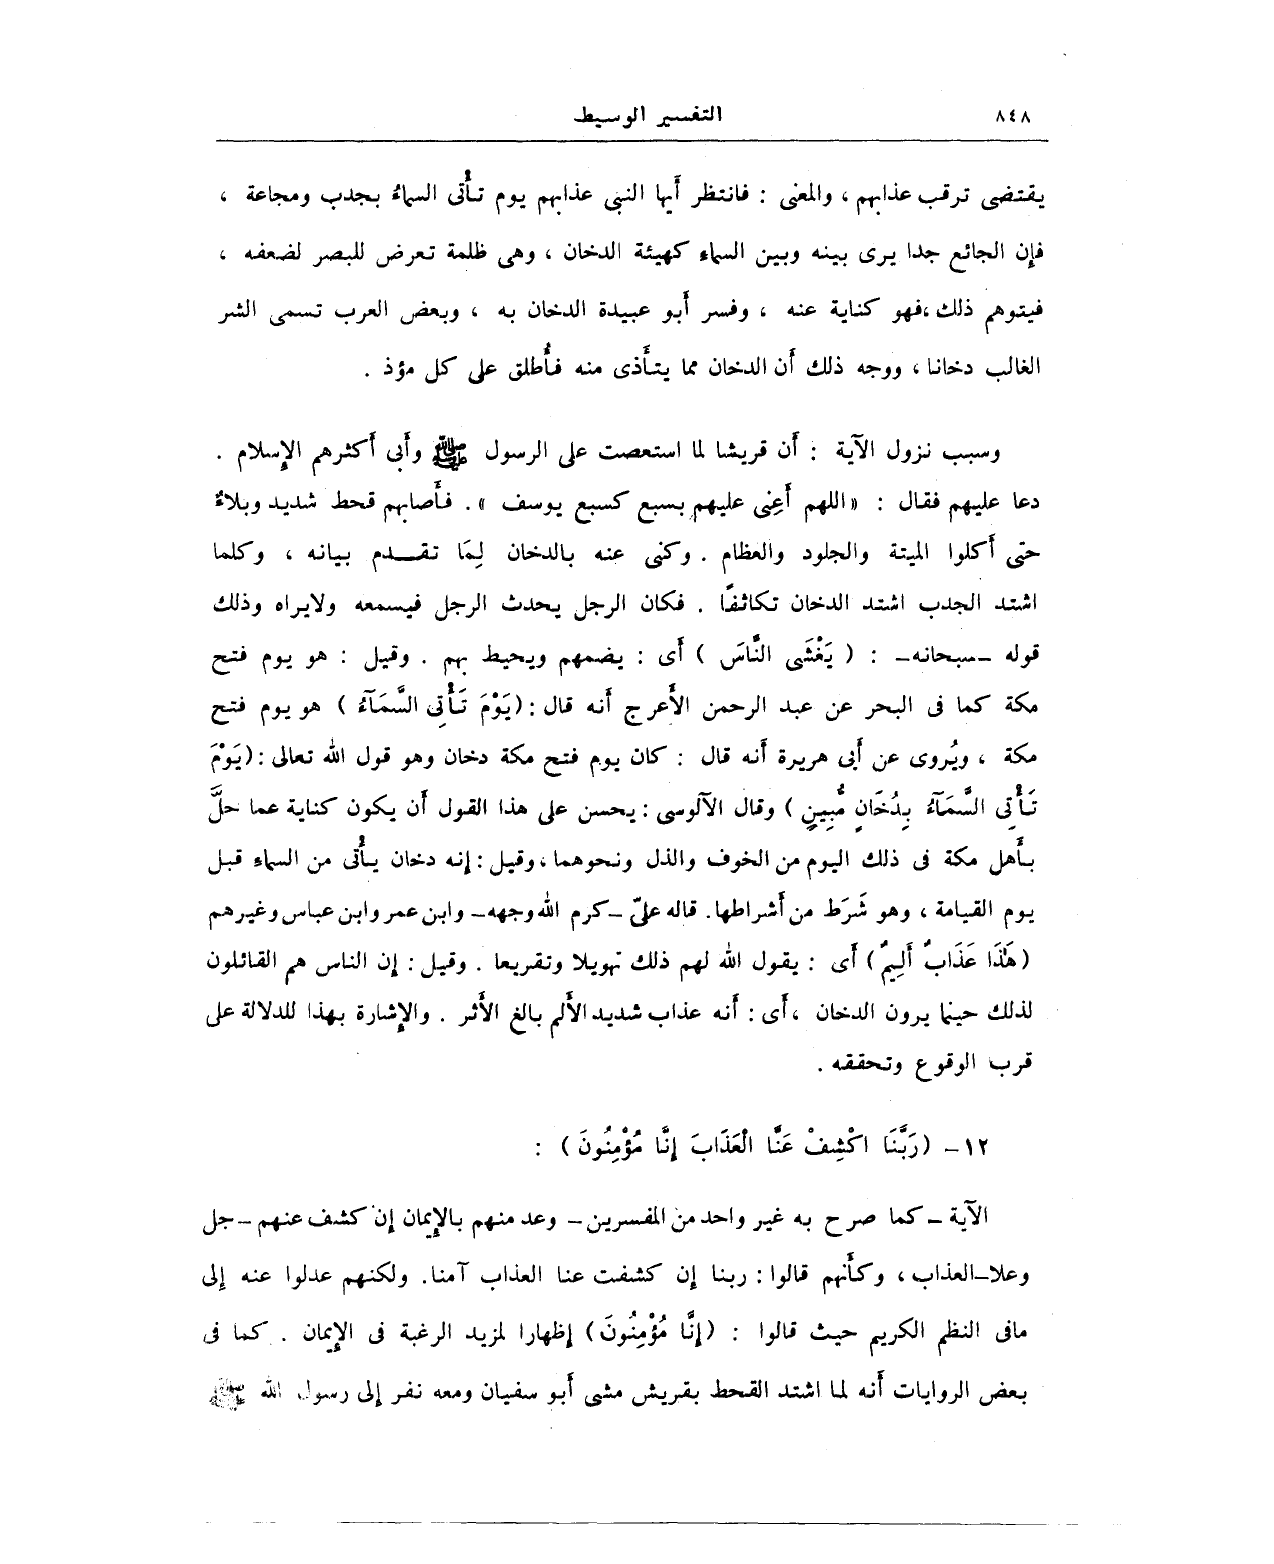 ٨٤٨
التفسير الوسيط
يقتضى ترقب عذابهم ، والمعنى : فانتظر أَيها النبى عذابهم يوم تأْتى السماءُ بجدب ومجاعة ،
فإن الجائع جدا يرى بينه وبين السماء كهيئة الدخان ، وهى ظلمة تعرض للبصر لضعفه ،
فيتوهم ذلك ،فهو كناية عنه ، وفسر أَبو عبيدة الدخان به ، وبعض العرب تسمى الشر
الغالب دخانا ، ووجه ذلك أَن الدخان مما يتأَذى منه فأُطلق على كل مؤذ .
وسبب نزول الآية : أَن قريشا لما استعصت على الرسول ﷺ وأَبى أَكثرهم الإِسلام .
دعا عليهم فقال : « اللهم أَعِنى عليهم بسبع كسبع يوسف » . فأَصابهم قحط شديد وبلاءٌ
حتى أَكلوا الميتة والجلود والعظام . وكنى عنه بالدخان لِمَا تقـــدم بيانه ، وكلما
اشتد الجدب اشتد الدخان تكاثفًا . فكان الرجل يحدث الرجل فيسمعه ولايراه وذلك
قوله –سبحانه– : ( يَغْشَى النَّاسَ ) أَى : يضمهم ويحيط بهم . وقيل : هو يوم فتح
مكة كما فى البحر عن عبد الرحمن الأَعرج أَنه قال : (يَوْمَ تَأْتِى السَّمَآءُ ) هو يوم فتح
مكة ، ويُروى عن أَبى هريرة أَنه قال : كان يوم فتح مكة دخان وهو قول الله تعالى : (يَوْمَ
تَأْتِى السَّمَآءُ بِدُخَانٍ مُّبِينٍ ) وقال الآلوسى : يحسن على هذا القول أَن يكون كناية عما حلَّ
بأَهل مكة فى ذلك اليوم من الخوف والذل ونحوهما ، وقيل : إنه دخان يأْتى من السماء قبل
يوم القيامة ، وهو شَرَط من أَشراطها. قاله علىّ –كرم الله وجهه– وابن عمر وابن عباس وغيرهم
(هَٰذَا عَذَابٌ أَلِيمٌ ) أَى : يقول الله لهم ذلك تهويلا وتقريعا . وقيل : إن الناس هم القائلون
لذلك حينما يرون الدخان ، أَى : أَنه عذاب شديد الأَلم بالغ الأَثر . والإِشارة بهذا للدلالة على
قرب الوقوع وتحققه .
١٢– (رَبَّنَا اكْشِفْ عَنَّا الْعَذَابَ إِنَّا مُؤْمِنُونَ ) :
الآية – كما صرح به غير واحد من المفسرين – وعد منهم بالإِيمان إن كشف عنهم –جل
وعلا–العذاب ، وكأَنهم قالوا : ربنا إن كشفت عنا العذاب آمنا. ولكنهم عدلوا عنه إلى
مافى النظم الكريم حيث قالوا : (إِنَّا مُؤْمِنُونَ ) إظهارا لمزيد الرغبة فى الإِيمان . كما فى
بعض الروايات أَنه لما اشتد القحط بقريش مشى أَبو سفيان ومعه نفر إلى رسول الله ﷺ